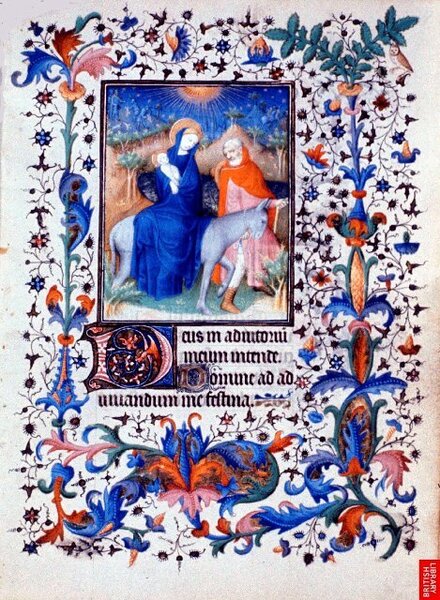 Deus in adiutoriu
meum intende.
Domine ad ad
iuuandum me festina.
BRITISH
LIBRARY